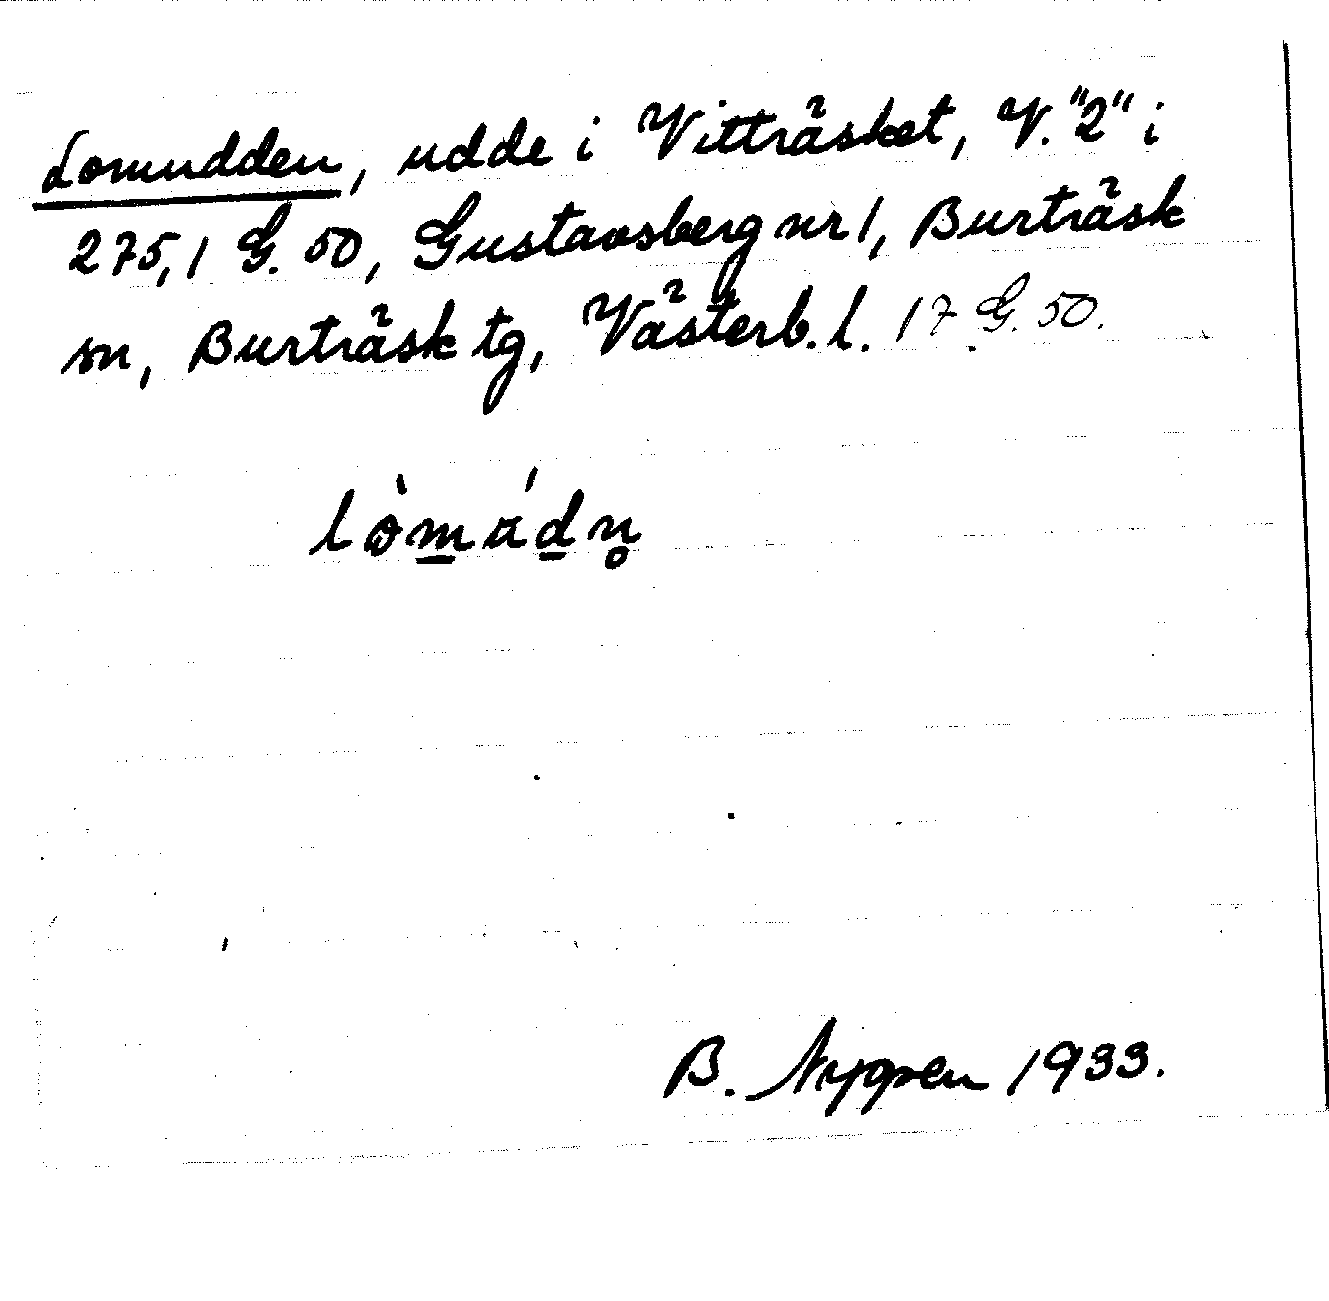 Lomudden, udde i Vitträsket, V. "2" i
275,1 G. 50, Gustavsberg nr 1, Burträsk
sn, Burträsk tg, Västerb. l. 17 G. 50.
B. Nygren 1933.